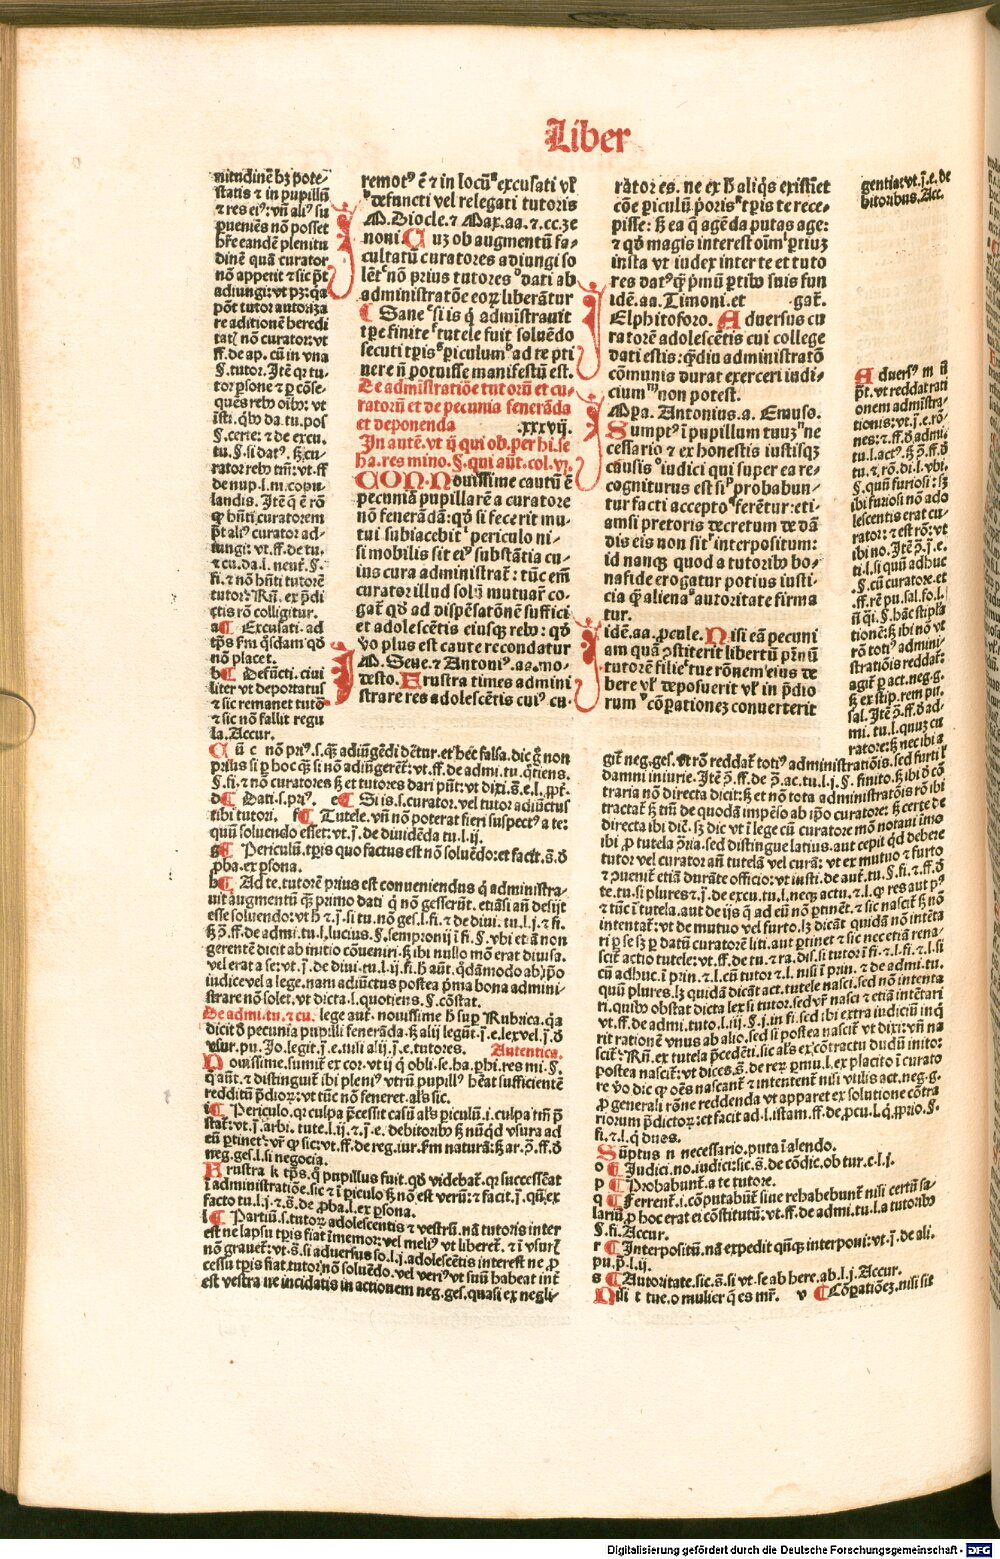 Liber
nitudinē hꝫ pote-
statis ⁊ in pupillū
⁊ res eiꝰ: vn̄ aliꝰ su
ꝑueniēs nō posset
hr̄e eandē plenitu
dinē quā curator
nō appetit ⁊ sic p̄t
adiungi: vt pꝫ: qꝛ
pōt tutor autoriza
re aditionē heredi
tatꝭ nō curator: vt
ff. de ap. cū in vna
§. tutor. Itē qꝛ tu-
tor ꝑsone ⁊ ꝑ cōse-
quēs rebꝰ oībꝰ: vt
īsti. qͥbꝰ da. tu. pos
§. certe: ⁊ de excu.
tu. §. si datꝰ. sꝫ cu-
rator rebꝰ tm̄: vt ff
de nup. l. in copu-
landis. Itē q̄ ē rō
ꝙ hn̄ti curatorem
p̄t aliꝰ curator ad-
iungi: vt. ff. de tu.
⁊ cu. da. l. neutꝭ. §.
fi. ⁊ nō hn̄ti tutorē
tutor: Rn̄. ex p̄di
ctis rō colligitur.
a¶ Excusati. ad
tp̄s ẜm qͦsdam qd̓
nō placet.
b¶ Defūcti. ciui
liter vt deportatus
⁊ sic remanet tuto
⁊ sic nō fallit regu
la. Accur.
remotꝰ ē ⁊ in locū excusati vł
defuncti vel relegati tutoris
M. Diocle. ⁊ Max. aa. ⁊. cc. ze
noni. Cuꝫ ob augmentū fa-
cultatū curatores adiungi so
lēt nō prius tutores dati ab
administratōe eoꝝ liberātur
¶ Sane si is q̄ admistrauit
tꝑe finite tutele fuit soluēdo
secuti tp̄is ꝑiculum ad te pti
nere n̄ potuisse manifestū est.
De admīstratiōe tutorū et cu-
ratorū et de pecunia fenerāda
et deponenda .xxxvij.
In autē. vt ij qui ob. per hi. se
ha. res mino. §. qui aūt. col. vj.
CON. Nouissime cautū ē
pecuniā pupillarē a curatore
nō fenerādā: qd̓ si fecerit mu-
tui subiacebit periculo ni-
si mobilis sit eiꝰ substātia cu-
ius cura administrat: tūc em̄
curator illud solū mutuar̄ co-
gat qd̓ ad dispēsatōnē suffici
et adolescētis eiusqꝫ rebꝰ: qd̓
vo plus est caute recondatur
M. Seue. ⁊ Antoniꝰ. aa. mo-
desto. Frustra times admini
strare res adolescētis cuiꝰ cu-
rātores. ne ex h̄ aliqs existīet
cōe ꝑiculū p̄oris tp̄is te rece-
pisse: sꝫ ea q̄ agēda putas age:
⁊ qd̓ magis interest oīm ꝑtiuꝫ
insta vt iudex inter te et tuto
res dat qꝫ p̄mū ꝑtibꝰ suis fun
idē. aa. Timoni. et gat̄.
Elphitoforo. Aduersus cu
ratorē adolescētis cui college
dati estis: qͣdiu administratō
cōmunis durat exerceri iudi-
cium non potest.
Mpa. Antonius. a. Emuso.
Sumptꝰ ī pupillum tuuꝫ ne
cessario ⁊ ex honestis iustisqꝫ
causis iudici qui super ea re-
cogniturus est si probabun-
tur facti accepto ferētur: eti-
amsi pretoris decretum de dā
dis eis non sit interpositum:
id nanqꝫ quod a tutoribꝰ bo-
nafide erogatur potius iusti-
cia q̄ aliena autoritate firma
tur.
idē. aa. pcule. Nisi eā pecuni
am quā ꝓstiterit libertū pr̄nū
tutorē filie tue rōnem eius de
bere vł deposuerit vł in p̄dio
rum cōꝑationez conuerterit
gentiat: vt. j. e. de
bitoribus. Acc.
Aduersꝰ m n̄
p̄t. vt reddat rati
onem admistra-
tionis: vt. j. e. rō-
nes: ⁊. ff. d̓ admi.
tu. l. actꝰ. sꝫ ꝯ. ff. d̓
tu. ⁊. rō. di. l. vbi.
§. quū furiosi: sꝫ
ibi furiosi nō ado
lescentis erat cu-
rator: ⁊ est rō: vt
ibi no. Itē ꝯ. j. e.
ti. l. si quū adhuc
§. cū curatore. et
.ff. rē pu. sal. fo. l.
n̄ qi. §. hāc stipla
tionē: sꝫ ibi nō vt
rō totiꝰ admini-
stratiōis reddat:
agit ꝑ act. neg. g.
sꝫ ex stip. rem pu.
sal. Itē ꝯ. ff. d̓ ad-
mi. tu. l. quuꝫ cu
ratore: sꝫ nec ibi a
Cū c nō priꝰ. s. qͣꝫ adiūgēdi dētur. et hec falsa. dic gͦ non
prius si ꝑ hoc qꝫ si nō adiūgerēt: vt. ff. de admi. tu. qͦtiens.
§. fi. ⁊ nō curatores sꝫ et tutores dari pn̄t: vt dixi. s̄. e. l. ꝓpt̄.
d¶ Dati. s. priꝰ. e¶ Si is. s. curator. vel tutor adiūctus
tibi tutori. f¶ Tutele. vn̄ nō poterat fieri suspectꝰ a te:
quū soluendo esset: vt. j. de diuidēda tu. l. ij.
g¶ Periculū. tp̄is quo factus est nō soluēdo: et facit. s̄. d̓
ꝓba. ex ꝑsona.
h¶ Ad te. tutorē prius est conueniendus q̄ administra-
uit augmentū qͣꝫ primo dati q̄ nō gesserūt. etiāsi an̄ desijt
esse soluendo: vt h̄ ⁊. j. si tu. nō ges. l. fi. ⁊ de diui. tu. l. j. ⁊ fi.
sꝫ ꝯ. ff. de admi. tu. l. lucius. §. sempronij ī fi. §. vbi etiā non
gerentē dicit ab initio cōueniri. sꝫ ibi nullo mō erat diuisa.
vel erat a se: vt. j. de diui. tu. l. ij. fi. h̄ aūt. qͦdāmodo ab ip̄o
iudice vel a lege. nam adiūctus postea p̄mia bona admini-
strare nō solet. vt dicta. l. quotiens. §. cōstat.
De admi. tu. ⁊ cu. lege aut. nouissime h̄ suꝑ Rubrica. qꝛ
dicit d̓ pecunia pupilli fenerāda. sꝫ alij legūt. j. e. lex vel. j. d̓
vsur. pu. Jo. legit. j. e. nisi alij. j. e. tutores. Autentica.
Nouissime. sumit̄ ex cor. vt ij q̄ obli. se. ha. phi. res mi. §.
q̄ aūt. ⁊ distinguit̄ ibi pleniꝰ vtrū pupillꝰ hēat sufficientē
redditū p̄dioꝝ: vt tūc nō feneret. als̄ sic.
i¶ Periculo. qꝛ culpa p̄cessit casū als̄ ꝑiculū. i. culpa tm̄ p̄
stat: vt. j. arbi. tute. l. ij. ⁊. j. e. debitoribꝰ sꝫ nūqd̓ vsura ad
eū ꝑtinet: vr̄ ꝙ sic: vt. ff. de reg. iur. ẜm naturā: sꝫ ar. ꝯ. ff. d̓
neg. ges. l. si negocia.
Frustra k tp̄s. q̄ pupillus fuit. qd̓ videbat̄. qꝛ successēat
ī administratiōe. sic ⁊ ī ꝑiculo sꝫ nō est verū: ⁊ facit. j. qn̄. ex
facto tu. l. j. ⁊. s̄. de ꝓba. l. ex ꝑsona.
l¶ Partiū. s. tutor adolescentis ⁊ vestrū. nā tutoris inter
est ne lapsu tp̄is fiat īmemor: vel meliꝰ vt liberet̄. ⁊ ī vsurꝭ
nō grauet̄: vt. s̄. si aduersus so. l. j. adolescētis interest ne ꝓ
cessu tp̄is fiat tutor nō soluēdo. vel veriꝰ vt suū habeat int̄
est vestra ne incidatis in actionem neg. ges. quasi ex negli-
git̄ neg. ges. et rō reddat̄ totiꝰ administratiōis. sed furti ł
damni iniurie. Itē ꝯ. ff. de ꝯ. ac. tu. l. j. §. finito. sꝫ ibi d̓ cō
traria nō directa dicit: sꝫ et nō tota administratōis rō ibi
tractat̄ sꝫ tm̄ de quodā impēso ab ip̄o curatore: sꝫ certe de
directa ibi dic̄. sꝫ dic vt ī lege cū curatore mō notaui īmo
ibi ꝓ tutela ꝯ̄ria. sed distingue latius. aut cepit qd̓ debere
tutor vel curator an̄ tutelā vel curā: vt ex mutuo ⁊ furto
⁊ ꝓuenit̄ etiā durāte officio: vt insti. de aut. tu. §. fi. ⁊. ff. d̓
te. tu. si plures ⁊. j. de excu. tu. l. neqꝫ actu. ⁊. l. ꝙ res aut pꝰ
⁊ tūc ī tutela. aut de ijs q̄ ad eū nō ꝑtinēt. ⁊ sic nascit̄ sꝫ nō
intentat̄: vt de mutuo vel furto. lꝫ dicāt quidā nō intēta
ri ꝑ se sꝫ ꝑ datū curatorē liti. aut ꝑtinet ⁊ sic nec etiā rena-
scit̄ actio tutele: vt. ff. de tu. ⁊ ra. dis. si tutor ī fi. ⁊. l. fi. ⁊. l. si
cū adhuc. ī prin. ⁊. l. cū tutor ⁊. l. nisi ī prin. ⁊ de admi. tu.
quū plures. lꝫ quidā dicāt act. tutele nasci. sed nō intenta
ri. quibꝰ obstat dicta lex si tutor. sed vr̄ nasci ⁊ etiā intētari
vt. ff. de admi. tuto. l. iij. §. j. in fi. sed ibi extra iudiciū inqͥ
rit rationē vnus ab alio. sed si postea nascit̄ vt dixi: vn̄ na
scit̄: Rn̄. ex tutela p̄cedēti. sic als̄ ex cōtractu dudū inito:
postea nascit̄: vt dices. s̄. de rer. ꝑmu. l. ex placito ī curato
re vo dic ꝙ oēs nascant̄ ⁊ intentent̄ nisi vtilis act. neg. g.
ꝓ generali rōne reddenda vt apparet ex solutione cōtra
riorum p̄dictoꝝ: et facit ad. l. istam. ff. de. ꝓcu. l. q̄ ꝓprio. §.
fi. ⁊. l. q̄ dues.
Sūptus n necessario. puta ī alendo.
o ¶ Judici. no. iudici: sic. s̄. de cōdic. ob tur. c. l. j.
p ¶ Probabunt̄. a te tutore.
q ¶ Ferrent̄. i. cōputabūt̄ siue rehabebunt̄ nisi certū sa-
lariū ꝓ hoc erat ei cōstitutū: vt. ff. de admi. tu. l. a tutoribꝰ
§. fi. Accur.
r ¶ Interpositū. nā expedit qn̄qꝫ interponi: vt. j. de ali.
pu. p. l. ij.
s ¶ Autoritate. sic. s̄. si vt se ab here. ab. l. j. Accur.
Nisi t tue. o mulier q̄ es mr̄. v ¶ Cōꝑationeꝫ. nisi sit
Digitalisierung gefördert durch die Deutsche Forschungsgemeinschaft - DFG